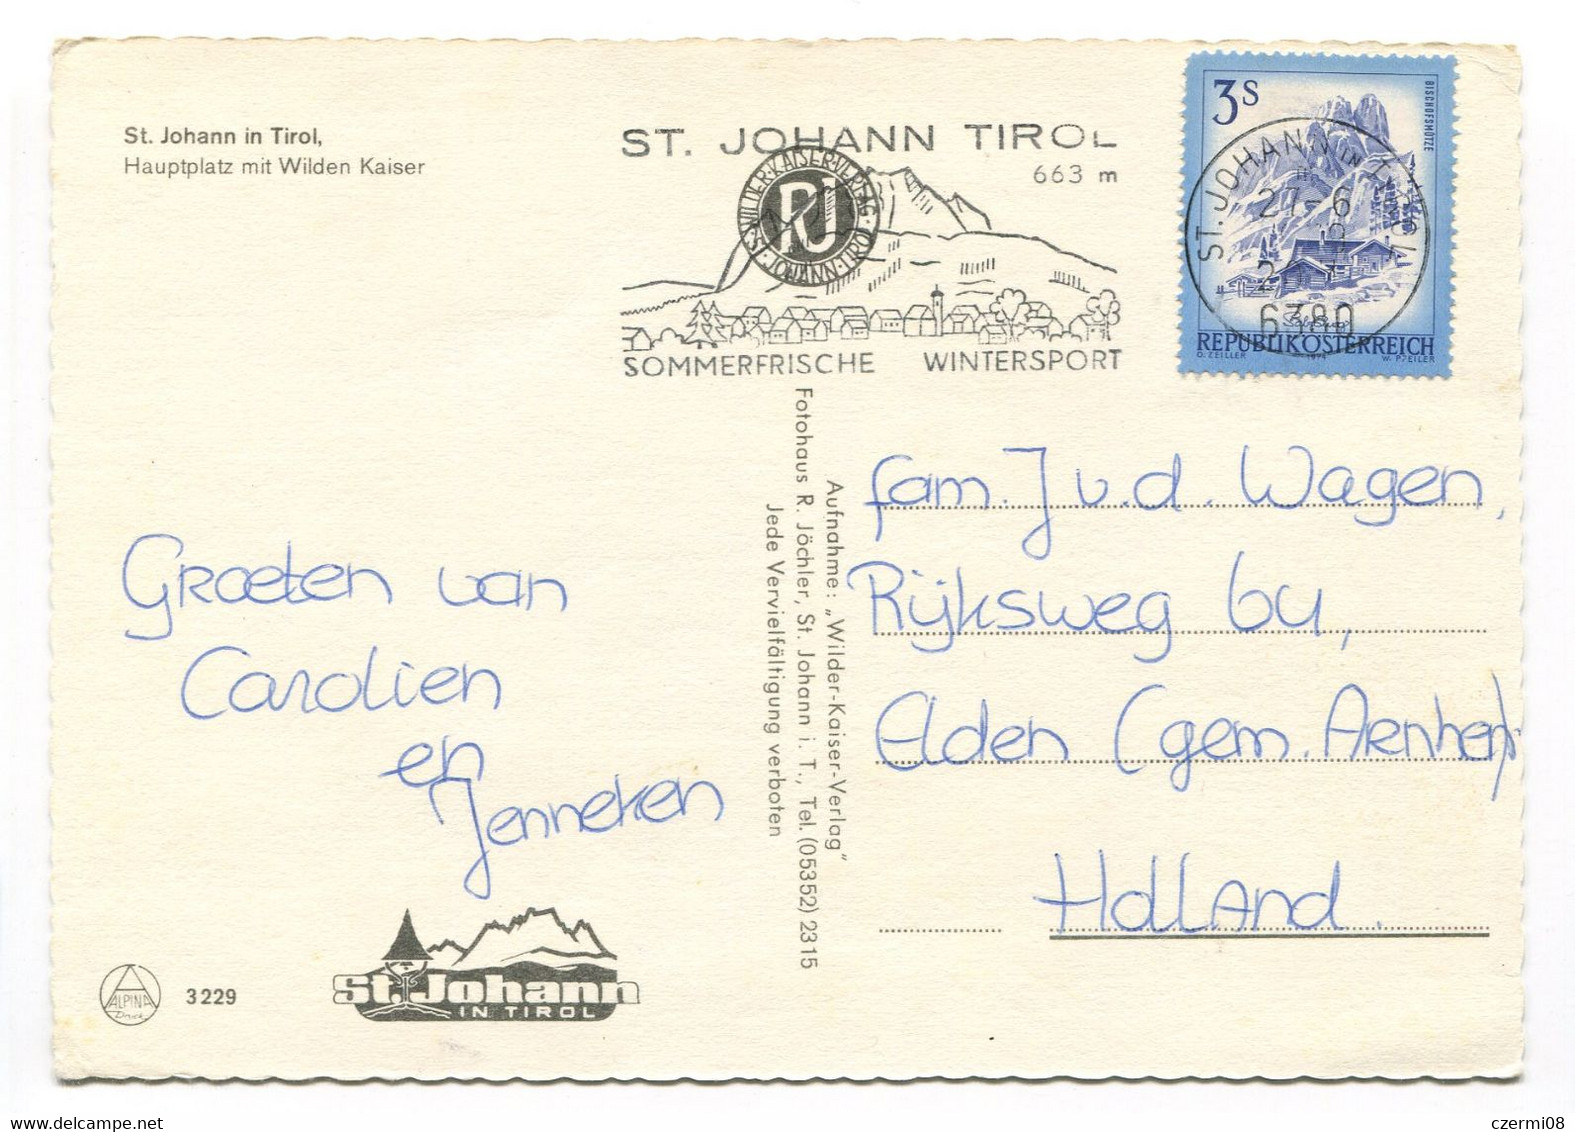 St. Johann in Tirol,
Hauptplatz mit Wilden Kaiser
ST. JOHANN TIROL
663 m
WILDER-KAISER-VERLAG · ST. JOHANN-TIROL
RJ
SOMMERFRISCHE WINTERSPORT
3 S
BISCHOFSMÜTZE
ST. JOHANN IN TIROL
27-6
6380
REPUBLIK ÖSTERREICH
O. ZEILLER 1974 W. PFEILER
Groeten van
Carolien
en
Jenneken
Aufnahme: „Wilder-Kaiser-Verlag"
Fotohaus R. Jöchler, St. Johann i. T., Tel. (05352) 2315
Jede Vervielfältigung verboten
fam. J v.d. Wagen,
Rijksweg
Elden (gem. Arnhem)
Holland.
ALPINA
Druck
3229
St. Johann
IN TIROL
czermi08
www.delcampe.net